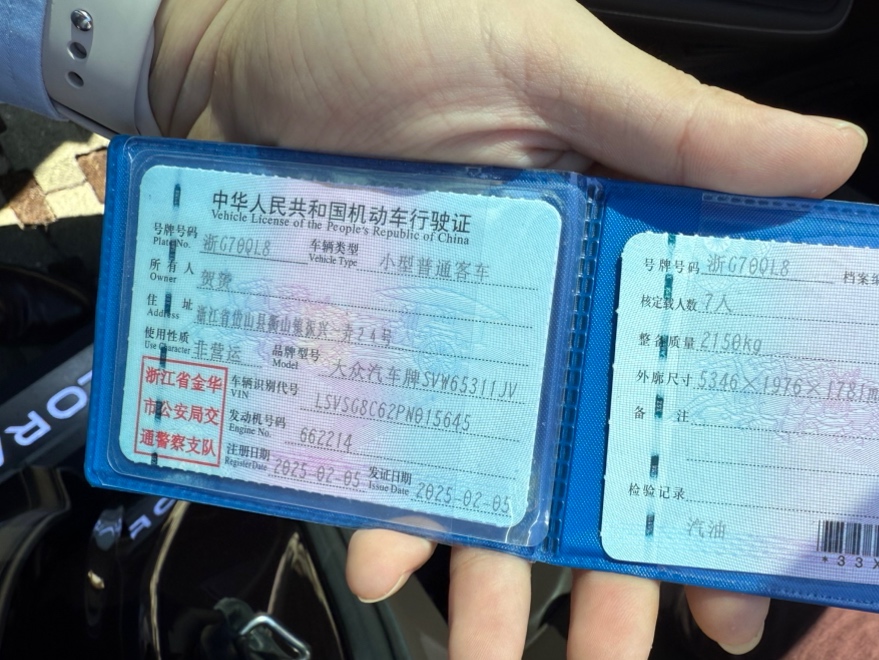 中华人民共和国机动车行驶证
Vehicle License of the People's Republic of China
号牌号码 浙G70QL8 车辆类型 小型普通客车
Plate No. Vehicle Type
所有人 贺赟
Owner
住址 浙江省岱山县衢山镇振兴一弄24号
Address
使用性质 非营运 品牌型号 大众汽车牌SVW65311JV
Use Character Model
浙江省金华
市公安局交
通警察支队
车辆识别代号 LSVSG8C62PN015645
VIN
发动机号码 662214
Engine No.
注册日期 2025-02-05 发证日期 2025-02-05
Register Date Issue Date
号牌号码 浙G70QL8 档案编
核定载人数 7人
整备质量 2150kg
外廓尺寸 5346×1976×1781
备注
检验记录
汽油
*33X